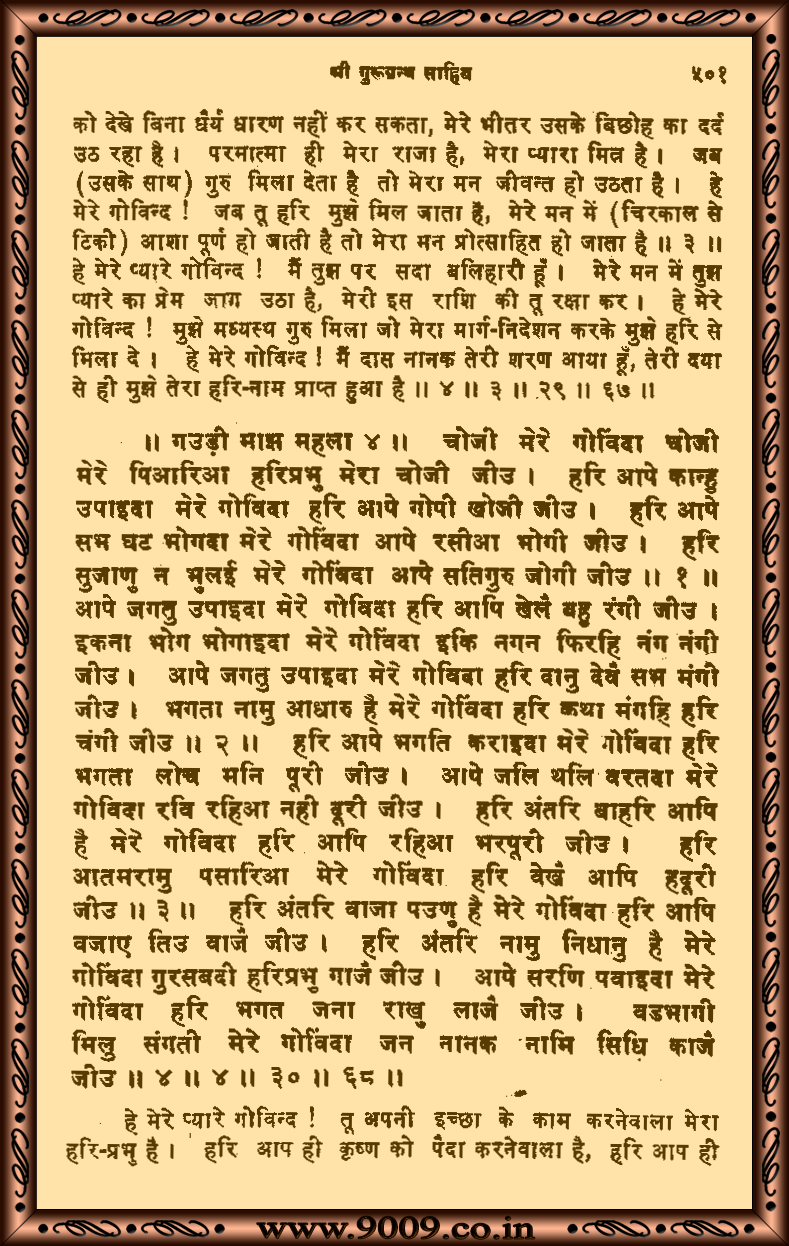 श्री गुरूग्रन्थ साहिब ५०१
को देखे बिना धैर्य धारण नहीं कर सकता, मेरे भीतर उसके बिछोह का दर्द
उठ रहा है। परमात्मा ही मेरा राजा है, मेरा प्यारा मित्र है। जब
(उसके साथ) गुरु मिला देता है तो मेरा मन जीवन्त हो उठता है। हे
मेरे गोविन्द! जब तू हरि मुझे मिल जाता है, मेरे मन में (चिरकाल से
टिकी) आशा पूर्ण हो जाती है तो मेरा मन प्रोत्साहित हो जाता है ॥ ३ ॥
हे मेरे प्यारे गोविन्द! मैं तुझ पर सदा बलिहारी हूँ। मेरे मन में तुझ
प्यारे का प्रेम जाग उठा है, मेरी इस राशि की तू रक्षा कर। हे मेरे
गोविन्द! मुझे मध्यस्थ गुरु मिला जो मेरा मार्ग-निदेशन करके मुझे हरि से
मिला दे। हे मेरे गोविन्द! मैं दास नानक तेरी शरण आया हूँ, तेरी दया
से ही मुझे तेरा हरि-नाम प्राप्त हुआ है ॥ ४ ॥ ३ ॥ २९ ॥ ६७ ॥
॥ गउड़ी माझ महला ४ ॥ चोजी मेरे गोविंदा चोजी
मेरे पिआरिआ हरिप्रभु मेरा चोजी जीउ। हरि आपे कान्हु
उपाइदा मेरे गोविदा हरि आपे गोपी खोजी जीउ। हरि आपे
सभ घट भोगदा मेरे गोविंदा आपे रसीआ भोगी जीउ। हरि
सुजाणु न भुलई मेरे गोबिंदा आपे सतिगुरु जोगी जीउ ॥ १ ॥
आपे जगतु उपाइदा मेरे गोविदा हरि आपि खेलै बहु रंगी जीउ।
इकना भोग भोगाइदा मेरे गोविंदा इकि नगन फिरहि नंग नंगी
जीउ। आपे जगतु उपाइदा मेरे गोविदा हरि दानु देवै सभ मंगी
जीउ। भगता नामु आधारु है मेरे गोविंदा हरि कथा मंगहि हरि
चंगी जीउ ॥ २ ॥ हरि आपे भगति कराइदा मेरे गोविंदा हरि
भगता लोच मनि पूरी जीउ। आपे जलि थलि वरतदा मेरे
गोविदा रवि रहिआ नही दूरी जीउ। हरि अंतरि बाहरि आपि
है मेरे गोविदा हरि आपि रहिआ भरपूरी जीउ। हरि
आतमरामु पसारिआ मेरे गोविंदा हरि वेखै आपि हदूरी
जीउ ॥ ३ ॥ हरि अंतरि वाजा पउणु है मेरे गोविंदा हरि आपि
वजाए तिउ वाजै जीउ। हरि अंतरि नामु निधानु है मेरे
गोविंदा गुरसबदी हरिप्रभु गाजै जीउ। आपे सरणि पवाइदा मेरे
गोविंदा हरि भगत जना राखु लाजै जीउ। वडभागी
मिलु संगती मेरे गोविंदा जन नानक नामि सिधि काजै
जीउ ॥ ४ ॥ ४ ॥ ३० ॥ ६८ ॥
हे मेरे प्यारे गोविन्द! तू अपनी इच्छा के काम करनेवाला मेरा
हरि-प्रभु है। हरि आप ही कृष्ण को पैदा करनेवाला है, हरि आप ही
www.9009.co.in